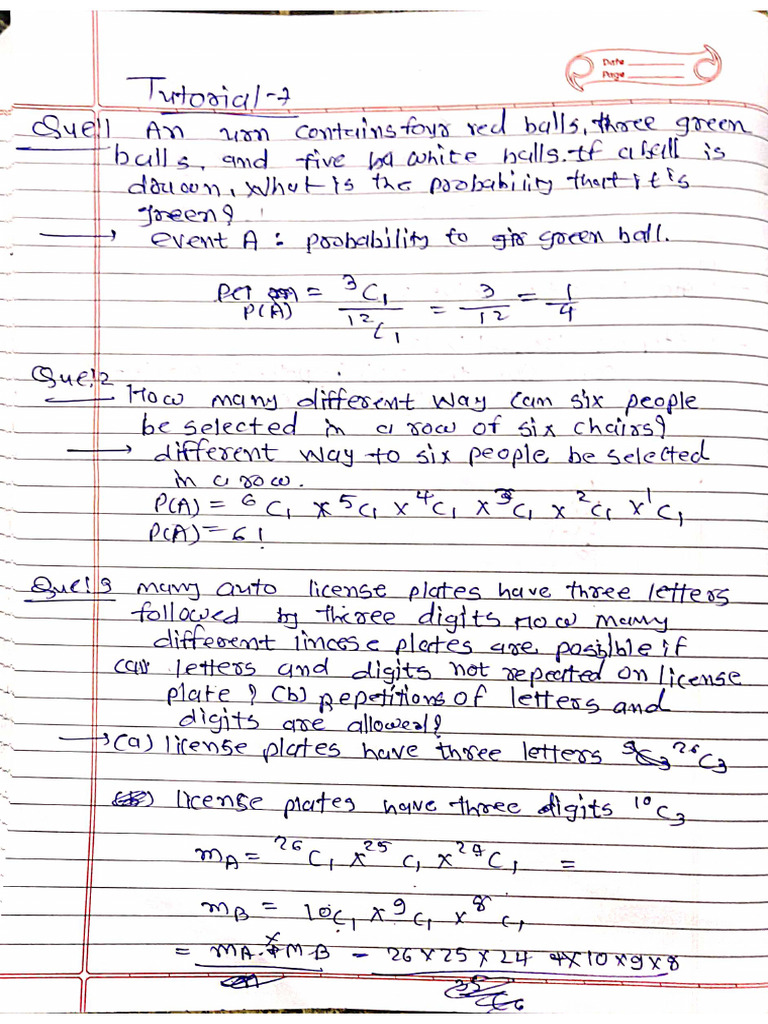 Date
Page
Tutorial-7
Que:1 An urn contains four red balls, three green
balls, and five white balls. If a ball is
drawn, What is the probability that it is
green?
→ event A : probability to green ball.
P(A) = ³C₁ / ¹²C₁ = 3/12 = 1/4
Que:2 How many different way can six people
be selected in a row of six chairs?
→ different way to six people be selected
in a row.
P(A) = ⁶C₁ × ⁵C₁ × ⁴C₁ × ³C₁ × ²C₁ × ¹C₁
P(A) = 6!
Que:3 many auto license plates have three letters
followed by thiree digits How many
different lincese plates are possible if
(a) letters and digits not repeated on license
plate? (b) Repetitions of letters and
digits are allowed?
→ (a) license plates have three letters ²⁶C₃
license plates have three digits ¹⁰C₃
mA = ²⁶C₁ × ²⁵C₁ × ²⁴C₁ =
mB = 10C₁ × ⁹C₁ × ⁸C₁
= mA × mB = 26 × 25 × 24 × 10 × 9 × 8